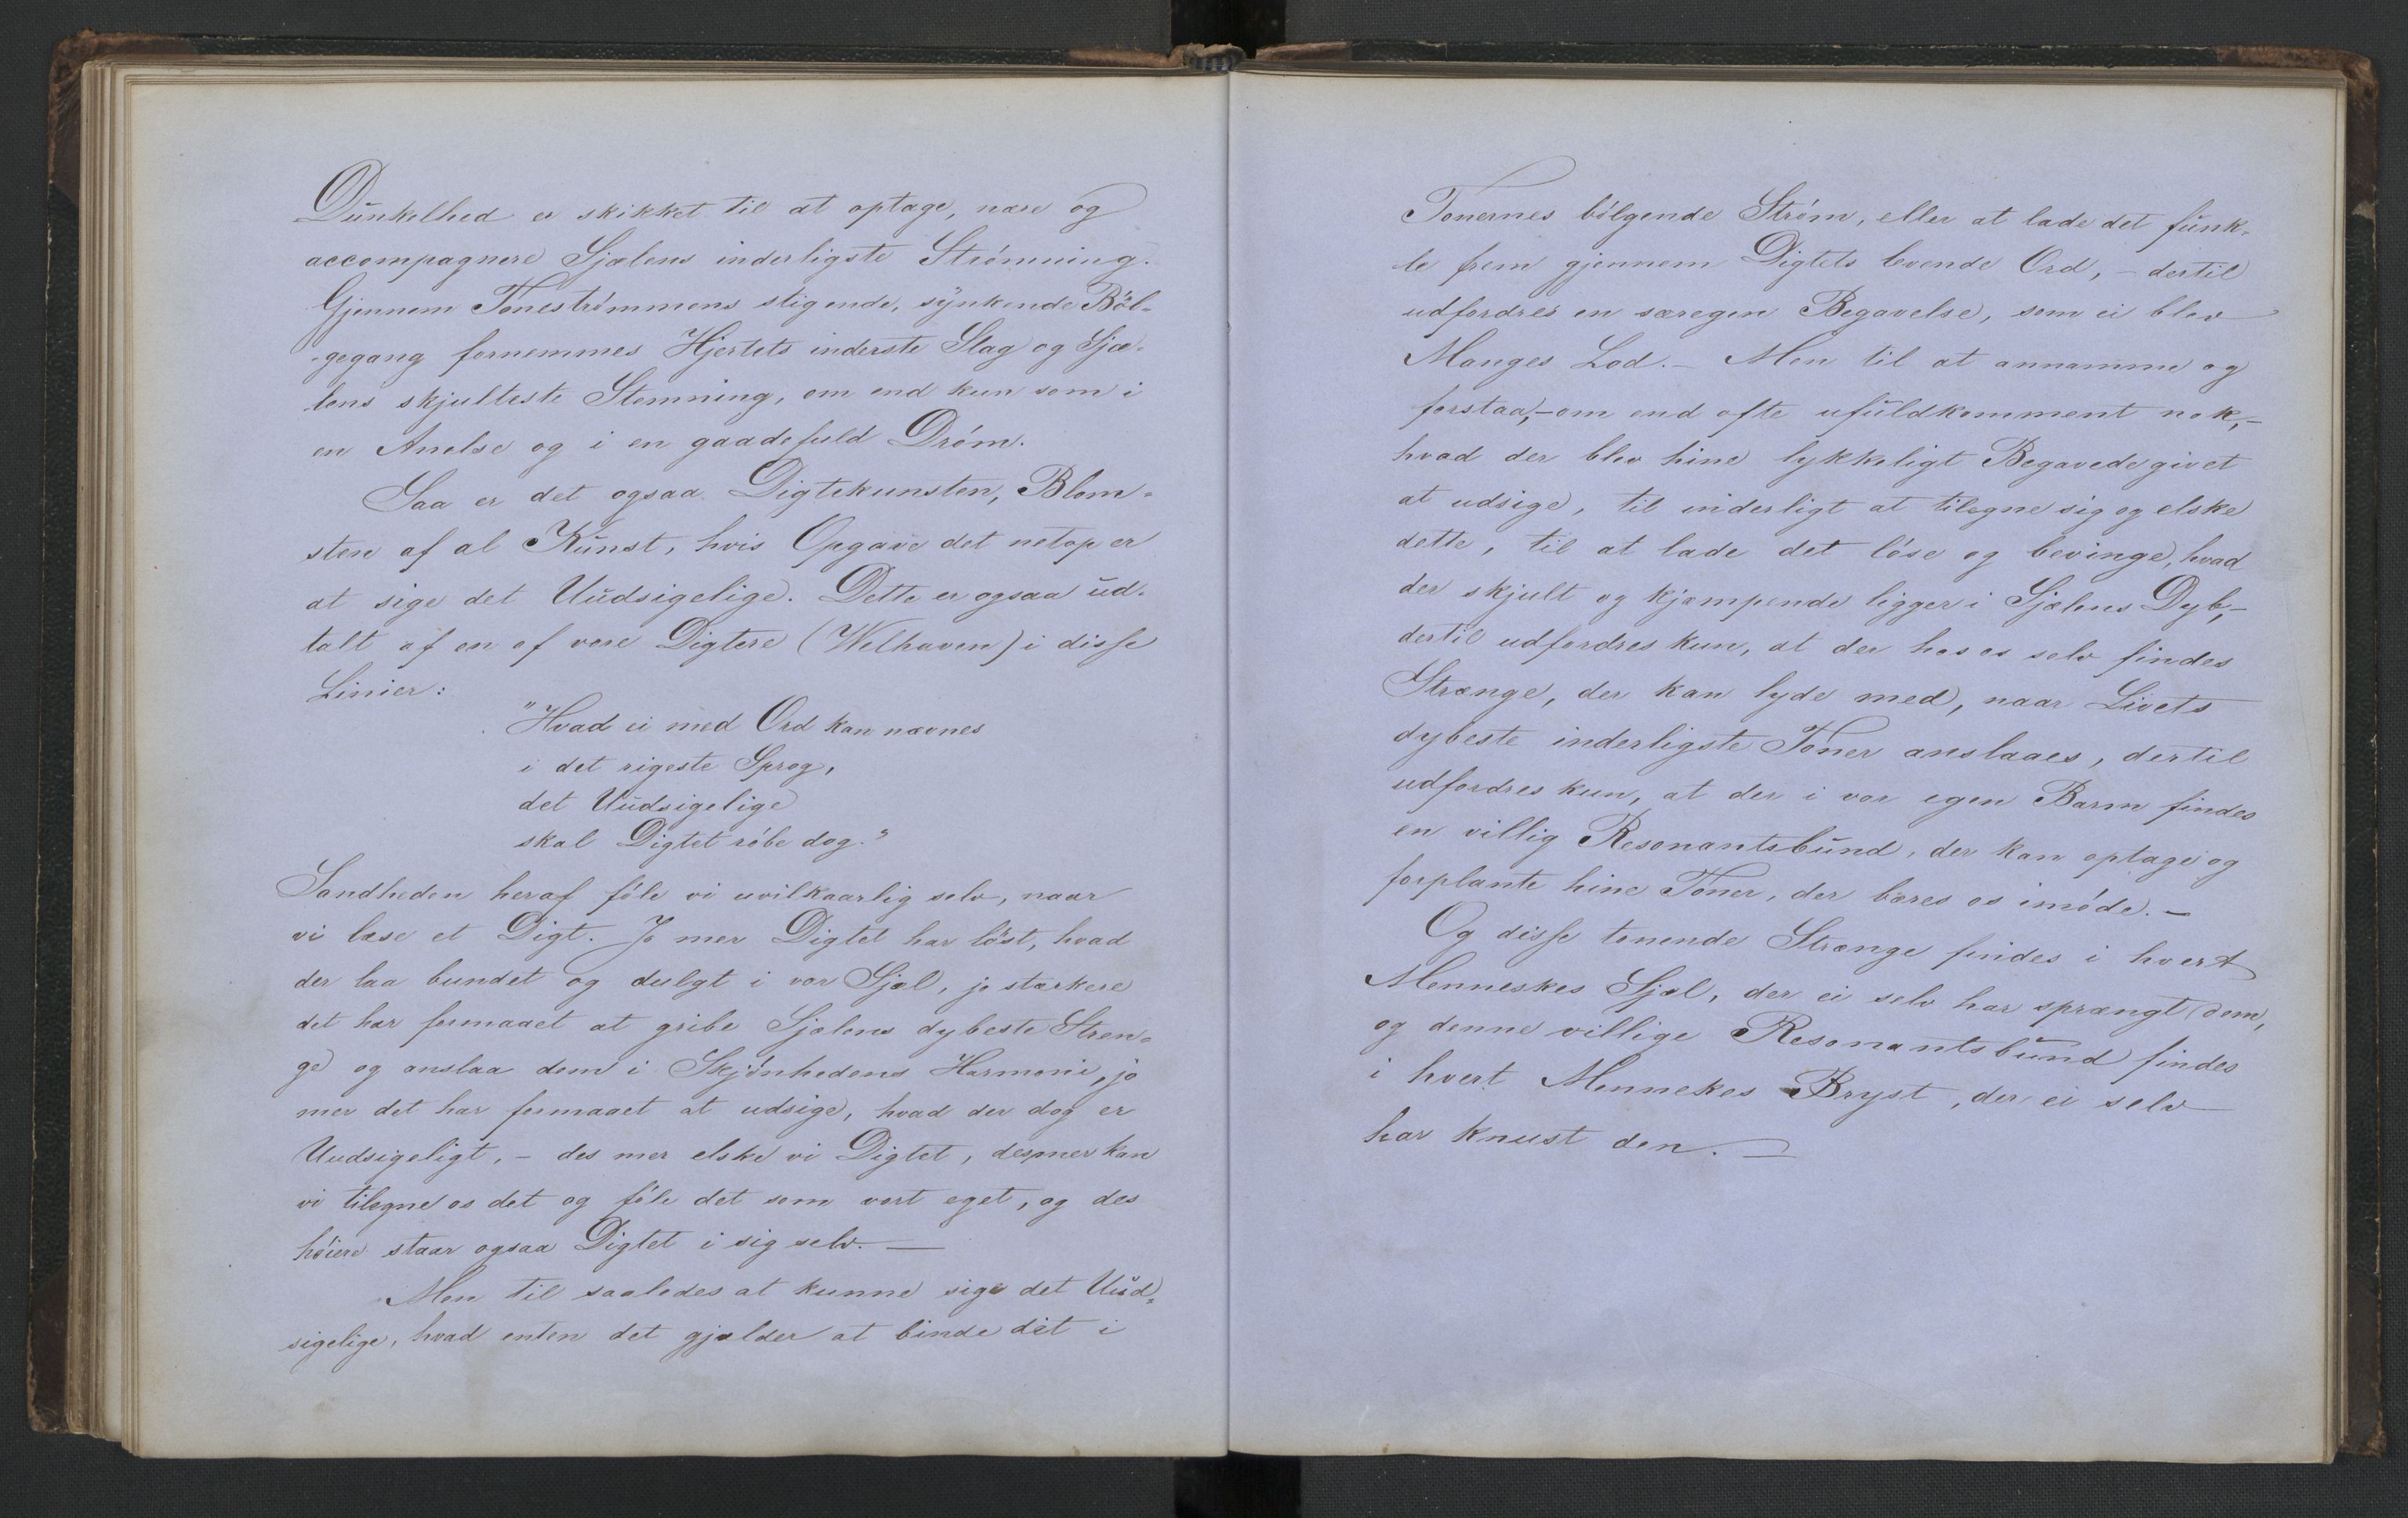 Dunkelhed er skikket til at optage, nære og
accompagnere Sjælens inderligste Strömning.
Gjennem Toneströmmens stigende, synkende Böl-
gegang fornemmes Hjertets inderste Slag og Sjæ-
lens skjulteste Stemning, om end kun som i
en Anelse og i en gaadefuld Dröm.
Saa er det ogsaa Digtekunsten, Blom-
sten af al Kunst, hvis Opgave det netop er
at sige det Uudsigelige. Dette er ogsaa ud-
talt af en af vore Digtere (Welhaven) i disse
Linier:
"Hvad ei med Ord kan nævnes
i det rigeste Sprog,
det Uudsigelige
skal Digtet röbe dog."
Sandheden heraf föle vi uvilkaarlig selv, naar
vi læse et Digt. Jo mer Digtet har löst, hvad
der laa bundet og dulgt i vor Sjæl, jo stærkere
det har formaaet at gribe Sjælens dybeste Stren-
ge og anslaa dem i Skjönhedens Harmoni, jo
mer det har formaaet at udsige, hvad der dog er
Uudsigeligt, - des mer elske vi Digtet, desmer kan
vi tilegne os det og föle det som vort eget, og des
höiere staar ogsaa Digtet i sig selv. —
Men til saaledes at kunne sige det Uud-
sigelige, hvad enten det gjælder at binde det i
Tonernes bölgende Ström, eller at lade det funk-
le frem gjennem Digtets levende Ord, - dertil
udfordres en særegen Begavelse, som ei blev
Manges Lod. - Men til at annamme og
forstaa, - om end ofte ufuldkomment nok, -
hvad der blev hine lykkeligt Begavede givet
at udsige, til inderligt at tilegne sig og elske
dette, til at lade det löse og bevinge, hvad
der skjult og kjæmpende ligger i Sjælens Dyb, -
dertil udfordres kun, at der hos os selv findes
Strænge, der kan lyde med, naar Livets
dybeste inderligste Toner anslaaes, dertil
udfordres kun, at der i vor egen Barm findes
en villig Resonantsbund, der kan optage og
forplante hine Toner, der bæres os imöde. —
Og disse tonende Strænge findes i hvert
Menneskes Sjæl, der ei selv har sprængt dem,
og denne villige Resonantsbund findes
i hvert Mennekes Bryst, der ei selv
har knust den. —